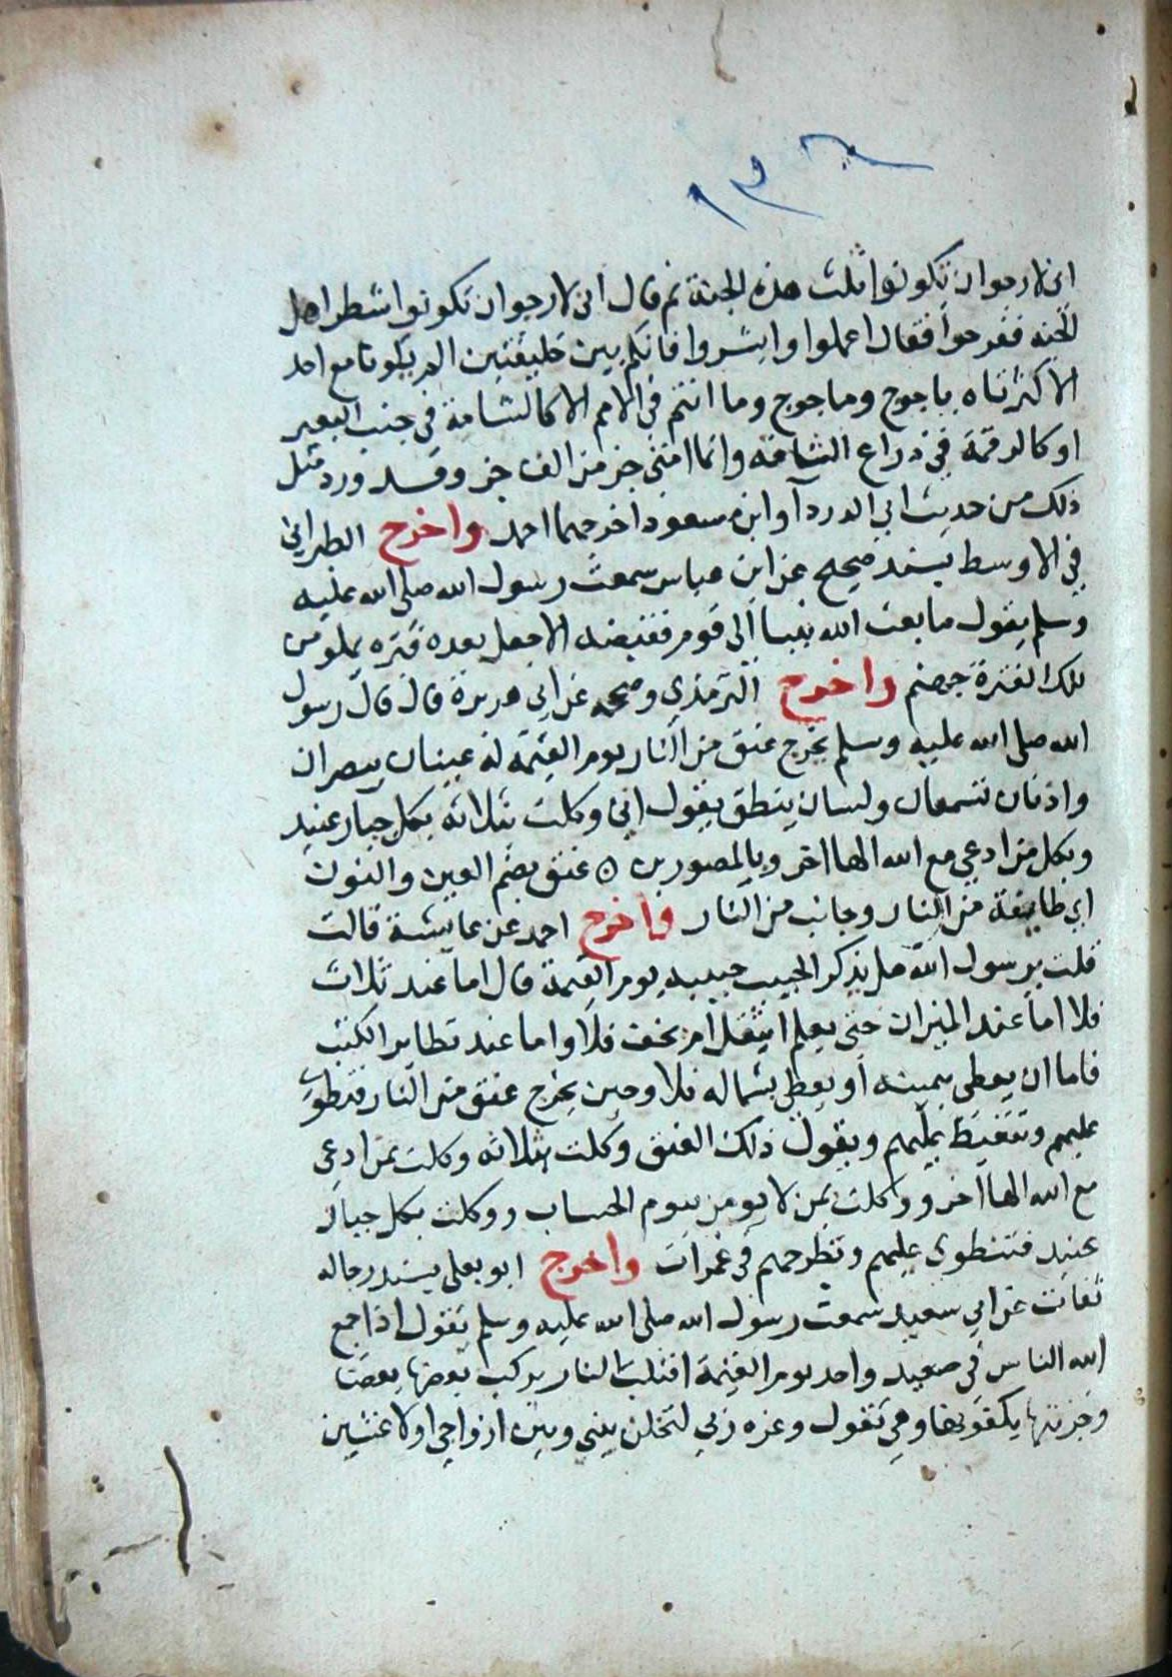 ١٣٦
اني لارجوا ان تكونوا ثلث هذه الجنة ثم قال اني لارجوا ان تكونوا شطر اهل
الجنه ففرحوا فقال اعملوا وابشروا فانكم بين خليقتين لم يكونا مع احد
الا كثرتاه ياجوج وماجوج وما انتم في الامم الا كالشامة في جنب البعير
او كالرقمة في ذراع الناقه وانما امتي جز من الف جز وقد ورد مثل
ذلك من حديث ابي الدردآ وابن مسعود اخرجهما احمد واخرج الطبراني
في الاوسط بسند صحيح عن ابن عباس سمعت رسول الله صلى الله عليه
وسلم يقول ما بعث الله نبيا الى قوم فقبضه الا جعل بعده فتره يملو من
تلك الفترة جهنم واخرج الترمذي وصححه عن ابي هريرة قال قال رسول
الله صلى الله عليه وسلم يخرج عنق من النار يوم القيمة له عينان يبصران
واذنان تسمعان ولسان ينطق يقول اني وكلت بثلاثه بكل جبار عنيد
وبكل من ادعى مع الله الها اخر وبالمصورين ه عنق بضم العين والنون
اي طايفة من النار وجانب من النار واخرج احمد عن عايشة قالت
قلت يرسول الله هل يذكر الحبيب حبيبه يوم القيمة قال اما عند ثلاث
فلا اما عند الميزان حتى يعلم ايثقل ام يخف فلا واما عند تطاير الكتب
فاما ان يعطى بيمينه او يعطى بشماله فلا وحين يخرج عنق من النار فتطوى
عليهم وتتغيظ عليهم ويقول ذلك العنق وكلت بثلاثه وكلت بمن ادعى
مع الله الها اخر ووكلت بمن لا يومن بيوم الحساب ووكلت بكل جبار
عنيد فتنطوى عليهم وتطرحهم في غمرات واخرج ابو يعلى بسند رجاله
ثقات عن ابي سعيد سمعت رسول الله صلى الله عليه وسلم يقول اذا جمع
الله الناس في صعيد واحد يوم القيمة اقبلت النار يركب بعضها بعضا
وخزنتها يكفونها وهي تقول وعزه ربي لتخلن بيني وبين ازواجي اولا غشين